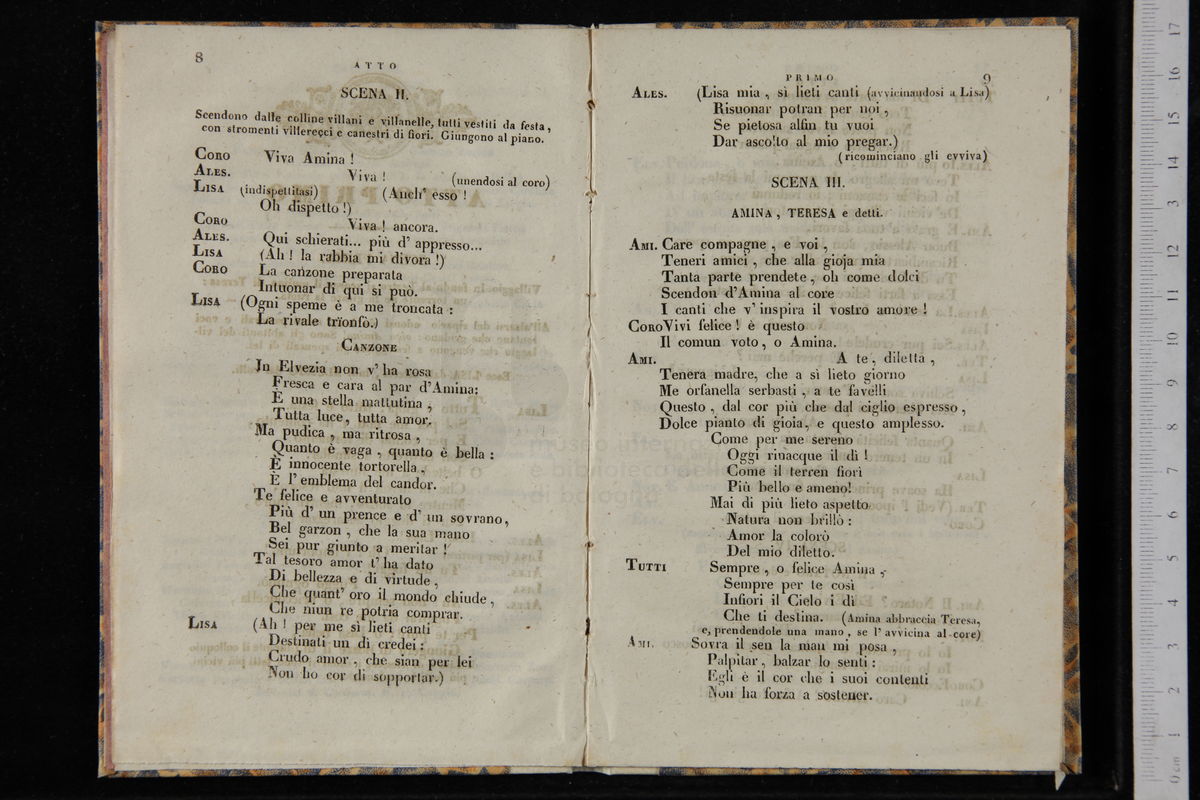 8
ATTO
SCENA II.
Scendono dalle colline villani e villanelle, tutti vestiti da festa,
con stromenti villerecci e canestri di fiori. Giungono al piano.
Coro Viva Amina !
Ales. Viva ! (unendosi al coro)
Lisa (indispettitasi) (Anch' esso !
Oh dispetto !)
Coro Viva ! ancora.
Ales. Qui schierati... più d' appresso...
Lisa (Ah ! la rabbia mi divora !)
Coro La canzone preparata
Intuonar di qui si può.
Lisa (Ogni speme è a me troncata :
La rivale trïonfò.)
Canzone
In Elvezia non v' ha rosa
Fresca e cara al par d'Amina:
È una stella mattutina ,
Tutta luce, tutta amor.
Ma pudica , ma ritrosa ,
Quanto è vaga , quanto è bella :
È innocente tortorella ,
È l' emblema del candor.
Te felice e avventurato
Più d' un prence e d' un sovrano,
Bel garzon , che la sua mano
Sei pur giunto a meritar !
Tal tesoro amor t' ha dato
Di bellezza e di virtude ,
Che quant' oro il mondo chiude ,
Che niun re potria comprar.
Lisa (Ah ! per me sì lieti canti
Destinati un dì credei :
Crudo amor , che sian per lei
Non ho cor di sopportar.)
PRIMO
9
Ales. (Lisa mia , sì lieti canti (avvicinandosi a Lisa)
Risuonar potran per noi ,
Se pietosa alfin tu vuoi
Dar ascolto al mio pregar.)
(ricominciano gli evviva)
SCENA III.
AMINA , TERESA e detti.
Ami. Care compagne , e voi ,
Teneri amici , che alla gioja mia
Tanta parte prendete , oh come dolci
Scendon d'Amina al core
I canti che v' inspira il vostro amore !
Coro Vivi felice ! è questo
Il comun voto, o Amina.
Ami. A te , diletta ,
Tenera madre, che a sì lieto giorno
Me orfanella serbasti , a te favelli
Questo , dal cor più che dal ciglio espresso ,
Dolce pianto di gioia, e questo amplesso.
Come per me sereno
Oggi rinacque il dì !
Come il terren fiorì
Più bello e ameno!
Mai di più lieto aspetto
Natura non brillò :
Amor la colorò
Del mio diletto.
Tutti Sempre , o felice Amina ,
Sempre per te così
Infiori il Cielo i dì
Che ti destina. (Amina abbraccia Teresa,
e, prendendole una mano , se l' avvicina al core)
Ami. Sovra il sen la man mi posa ,
Palpitar , balzar lo senti :
Egli è il cor che i suoi contenti
Non ha forza a sostener.